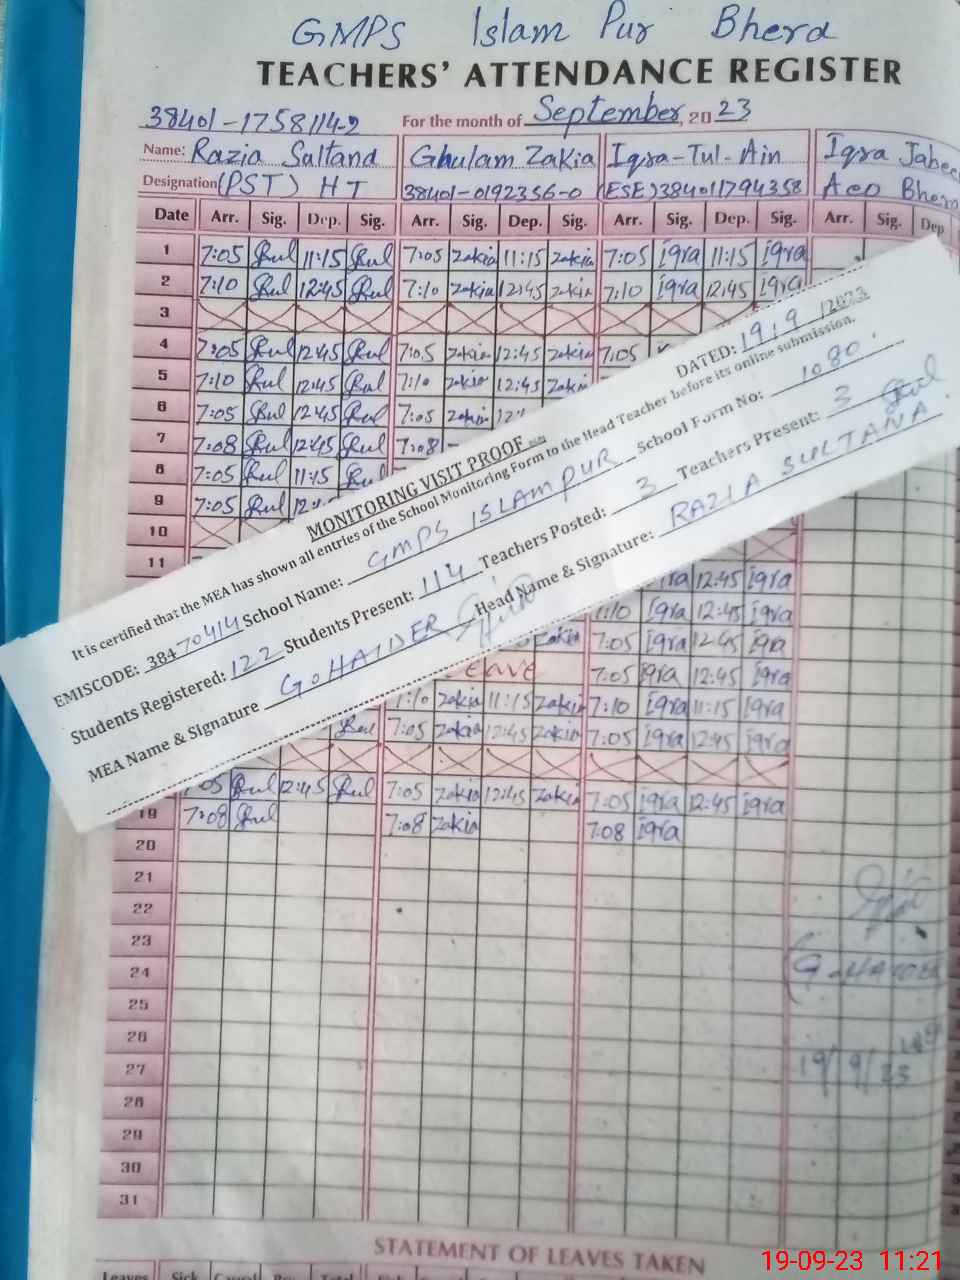 GMPS Islam Pur Bhera
TEACHERS' ATTENDANCE REGISTER
38401-1758114-2 For the month of September, 2023
Name: Razia Saltand Ghulam Zakia Iqra-Tul-Ain Iqra Jabee
Designation (PST) HT 38401-0192356-0 (ESE) 384011794358 Aeo Bhera
Date Arr. Sig. Dep. Sig. Arr. Sig. Dep. Sig. Arr. Sig. Dep. Sig. Arr. Sig. Dep
1 7:05 11:15 7:05 Zakia 11:15 Zakia 7:05 iqra 11:15 iqra
2 7:10 12:45 7:10 Zakia 12:45 Zakia 7:10 iqra 12:45 iqra
3
4 7:05 12:45 7:05 Zakia 12:45 Zakia 7:05
5 7:10 12:45 7:10 Zakia 12:45 Zakia
6 7:05 12:45 7:05 Zakia
7 7:08 12:45 7:08
8 7:05 11:15
9 7:05
10
11
MONITORING VISIT PROOF
DATED: 19/9/2023
It is certified that the MEA has shown all entries of the School Monitoring Form to the Head Teacher before its online submission.
EMISCODE: 38470414 School Name: GMPS ISLAMPUR School Form No: 1080
Students Registered: 122 Students Present: 114 Teachers Posted: 3 Teachers Present: 3
MEA Name & Signature G. HAIDER Head Name & Signature: RAZIA SULTANA
12:45 iqra
7:10 iqra 12:45 iqra
Zakia 7:05 iqra 12:45 iqra
eave 7:05 iqra 12:45 iqra
7:10 Zakia 11:15 Zakia 7:10 iqra 11:15 iqra
7:05 Zakia 12:45 Zakia 7:05 iqra 12:45 iqra
7:05 12:45 7:05 Zakia 12:45 Zakia 7:05 iqra 12:45 iqra
19 7:08 7:08 Zakia 7:08 iqra
20
21
22
23
24 G. HAIDER
25
26
27 19/9/23
28
29
30
31
STATEMENT OF LEAVES TAKEN
Leaves Sick Casual Total
19-09-23 11:21